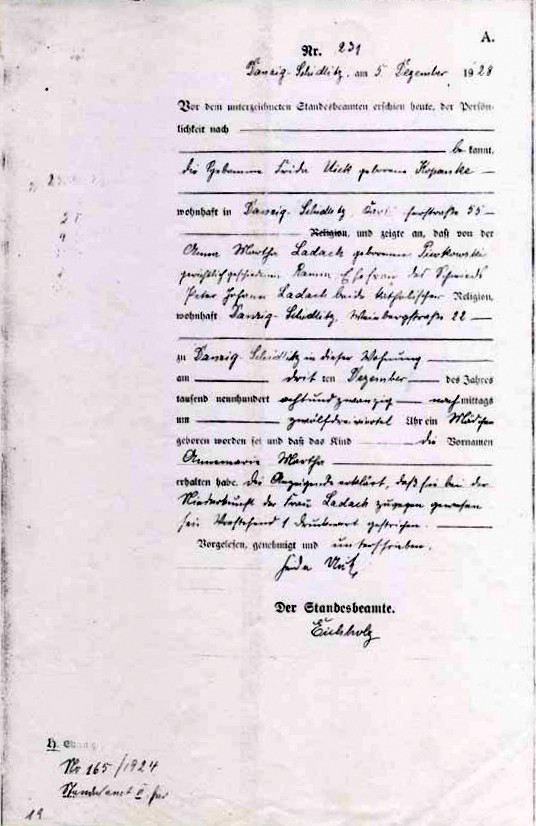 A.
Nr. 231
Danzig-Schidlitz, am 5 Dezember 1928
Vor dem unterzeichneten Standesbeamten erschien heute, der Persön-
lichkeit nach
be kannt,
die Hebamme Frida geborene Kopanke
wohnhaft in Danzig-Schidlitz, 55
Religion, und zeigte an, daß von der
Anna Martha Ladach geborenen Piwkowski
gerichtlich geschiedenen Ramm, Ehefrau des Schmieds
Peter Johann Ladach beide katholischer Religion,
wohnhaft Danzig-Schidlitz, Weinbergstraße 22
zu Danzig-Schidlitz in dieser Wohnung
am dritten Dezember des Jahres
tausend neunhundert achtundzwanzig nachmittags
um zwölfdreiviertel Uhr ein Mädchen
geboren worden sei und daß das Kind die Vornamen
Annemarie Martha
erhalten habe. Die Anzeigende erklärt, daß sie bei der
Niederkunft der Frau Ladach zugegen gewesen
sei. Vorstehend 1 Druckwort gestrichen.
Vorgelesen, genehmigt und unterschrieben.
Der Standesbeamte.
Eichholz
H.
No 165/1924
Standesamt II
19